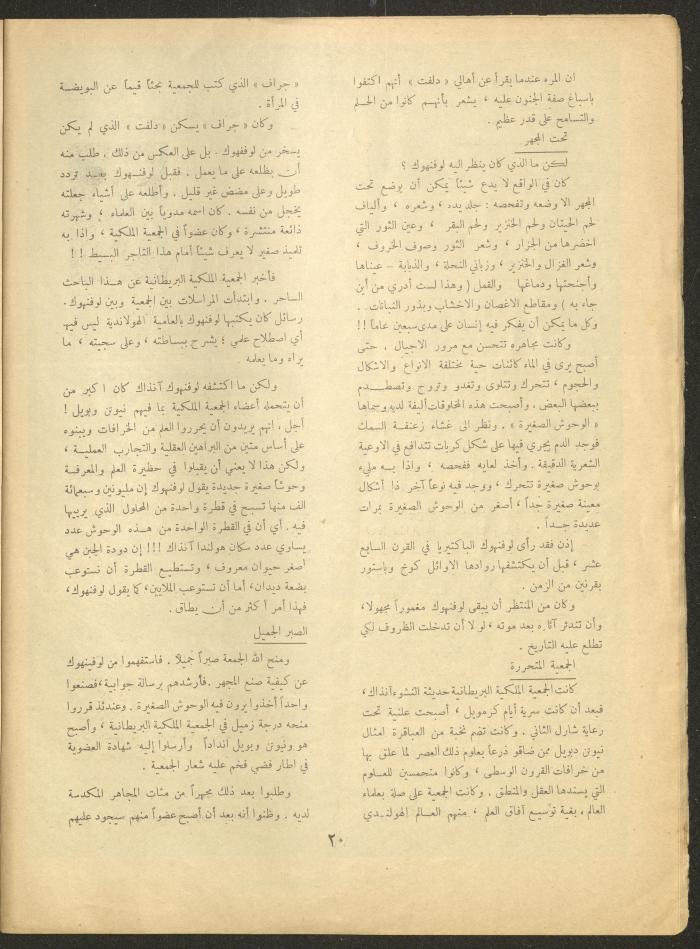 ان المرء عندما يقرأ عن أهالي « دلفت » أنهم اكتفوا
باسباغ صفة الجنون عليه ، يشعر بأنهم كانوا من الحلم
والتسامح على قدر عظيم .
تحت المجهر
لكن ما الذي كان ينظر اليه لوفنهوك ؟
كان في الواقع لا يدع شيئاً يمكن أن يوضع تحت
المجهر الا وضعه وتفحصه : جلد يده ، وشعره ، وألياف
لحم الحيتان ولحم الخنزير ولحم البقر ، وعين الثور التي
احضرها من الجزار ، وشعر الثور وصوف الخروف ،
وشعر الغزال والخنزير ، وزباني النحلة ، والذبابة - عيناها
وأجنحتها ودماغها والقمل ( وهذا لست أدري من أين
جاء به ) ومقاطع الاغصان والاخشاب وبذور النباتات .
وكل ما يمكن أن يفكر فيه إنسان على مدى سبعين عاماً !!
وكانت مجاهره تتحسن مع مرور الاجيال . حتى
أصبح يرى في الماء كائنات حية مختلفة الانواع والاشكال
والحجوم ، تتحرك وتتلوى وتغدو وتروح وتصطدم
ببعضها البعض . وأصبحت هذه المخلوقات أليفة لديه وسماها
« الوحوش الصغيرة » . ونظر الى غشاء زعنفة السمك
فوجد الدم يجري فيها على شكل كريات تتدافع في الاوعية
الشعرية الدقيقة . وأخذ لعابه ففحصه ، واذا به مليء
بوحوش صغيرة تتحرك ، ووجد فيه نوعاً آخر ذا أشكال
معينة صغيرة جداً ، أصغر من الوحوش الصغيرة بمرات
عديدة جداً .
إذن فقد رأى لوفنهوك الباكتيريا في القرن السابع
عشر ، قبل أن يكتشفها روادها الاوائل كوخ وباستور
بقرنين من الزمن .
وكان من المنتظر أن يبقى لوفنهوك مغموراً مجهولا ،
وأن تندثر آثاره بعد موته ، لولا أن تدخلت الظروف لكي
تطلع عليه التاريخ .
الجمعية المتحررة
كانت الجمعية الملكية البريطانية حديثة النشوء آنذاك ،
فبعد أن كانت سرية أيام كرمويل ، أصبحت علنية تحت
رعاية شارل الثاني . وكانت تضم نخبة من العباقرة امثال
نيوتن وبويل ممن ضاقو ذرعاً بعلوم ذلك العصر لما علق بها
من خرافات القرون الوسطى ، وكانوا متحمسين للعلوم
التي يسندها العقل والمنطق . وكانت الجمعية على صلة بعلماء
العالم ، بغية توسيع آفاق العلم ، منهم العالم الهولندي
« جراف » الذي كتب للجمعية بحثاً قيماً عن البويضة
في المرأة .
وكان « جراف » يسكن « دلفت » الذي لم يكن
يسخر من لوفنهوك . بل على العكس من ذلك . طلب منه
أن يطلعه على ما يعمل . فقبل لوفنهوك بعد تردد
طويل وعلى مضض غير قليل . وأطلعه على أشياء جعلته
يخجل من نفسه . كان اسمه مدوياً بين العلماء ، وشهرته
ذائعة منتشرة ، وكان عضواً في الجمعية الملكية ، واذا به
تلميذ صغير لا يعرف شيئاً أمام هذا التاجر البسيط ! !
فأخبر الجمعية الملكية البريطانية عن هذا الباحث
الساحر . وابتدأت المراسلات بين الجمعية وبين لوفنهوك .
رسائل كان يكتبها لوفنهوك بالعامية الهولاندية ليس فيها
أي اصطلاح علمي ؛ يشرح ببساطته ، وعلى سجيته ، ما
يراه وما يعلمه .
ولكن ما اكتشفه لوفنهوك آنذاك كان اكبر من
أن يتحمله أعضاء الجمعية الملكية بما فيهم نيوتن وبويل !
أجل . إنهم يريدون أن يحرروا العلم من الخرافات ويبنوه
على أساس متين من البراهين العقلية والتجارب العملية ،
ولكن هذا لا يعني أن يقبلوا في حظيرة العلم والمعرفة
وحوشاً صغيرة جديدة يقول لوفنهوك إن مليونين وسبعمائة
الف منها تسبح في قطرة واحدة من المحلول الذي يربيها
فيه . أي أن في القطرة الواحدة من هذه الوحوش عدد
يساوي عدد سكان هولندا آنذاك !!! إن دودة الجبن هي
أصغر حيوان معروف ، وتستطيع القطرة أن تستوعب
بضعة ديدان ، أما أن تستوعب الملايين ، كما يقول لوفنهوك ،
فهذا أمر أكثر من أن يطاق .
الصبر الجميل
ومنح الله الجمعة صبراً جميلاً . فاستفهموا من لوفينهوك
عن كيفية صنع المجهر . فأرشدهم برسالة جوابية ، فصنعوا
واحداً أخذوا يرون فيه الوحوش الصغيرة . وعندئذ قرروا
منحه درجة زميل في الجمعية الملكية البريطانية ، وأصبح
هو ونيوتن وبويل انداداً وأرسلوا إليه شهادة العضوية
في اطار فضي فخم عليه شعار الجمعية .
وطلبوا بعد ذلك مجهراً من مئات المجاهر المكدسة
لديه . وظنوا أنه بعد أن أصبح عضواً منهم سيجود عليهم
٢٠